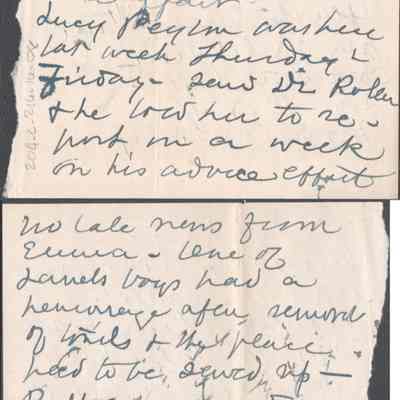 Lucy Peyton was here
last week Thursday &
Friday - saw Dr Rolen
& he told her to re-
port in a week
on his advice effort
no late news from
Emma - One of
Janets boys had a
hemorrage after removal
of tonsils & the place
had to be sewed up -